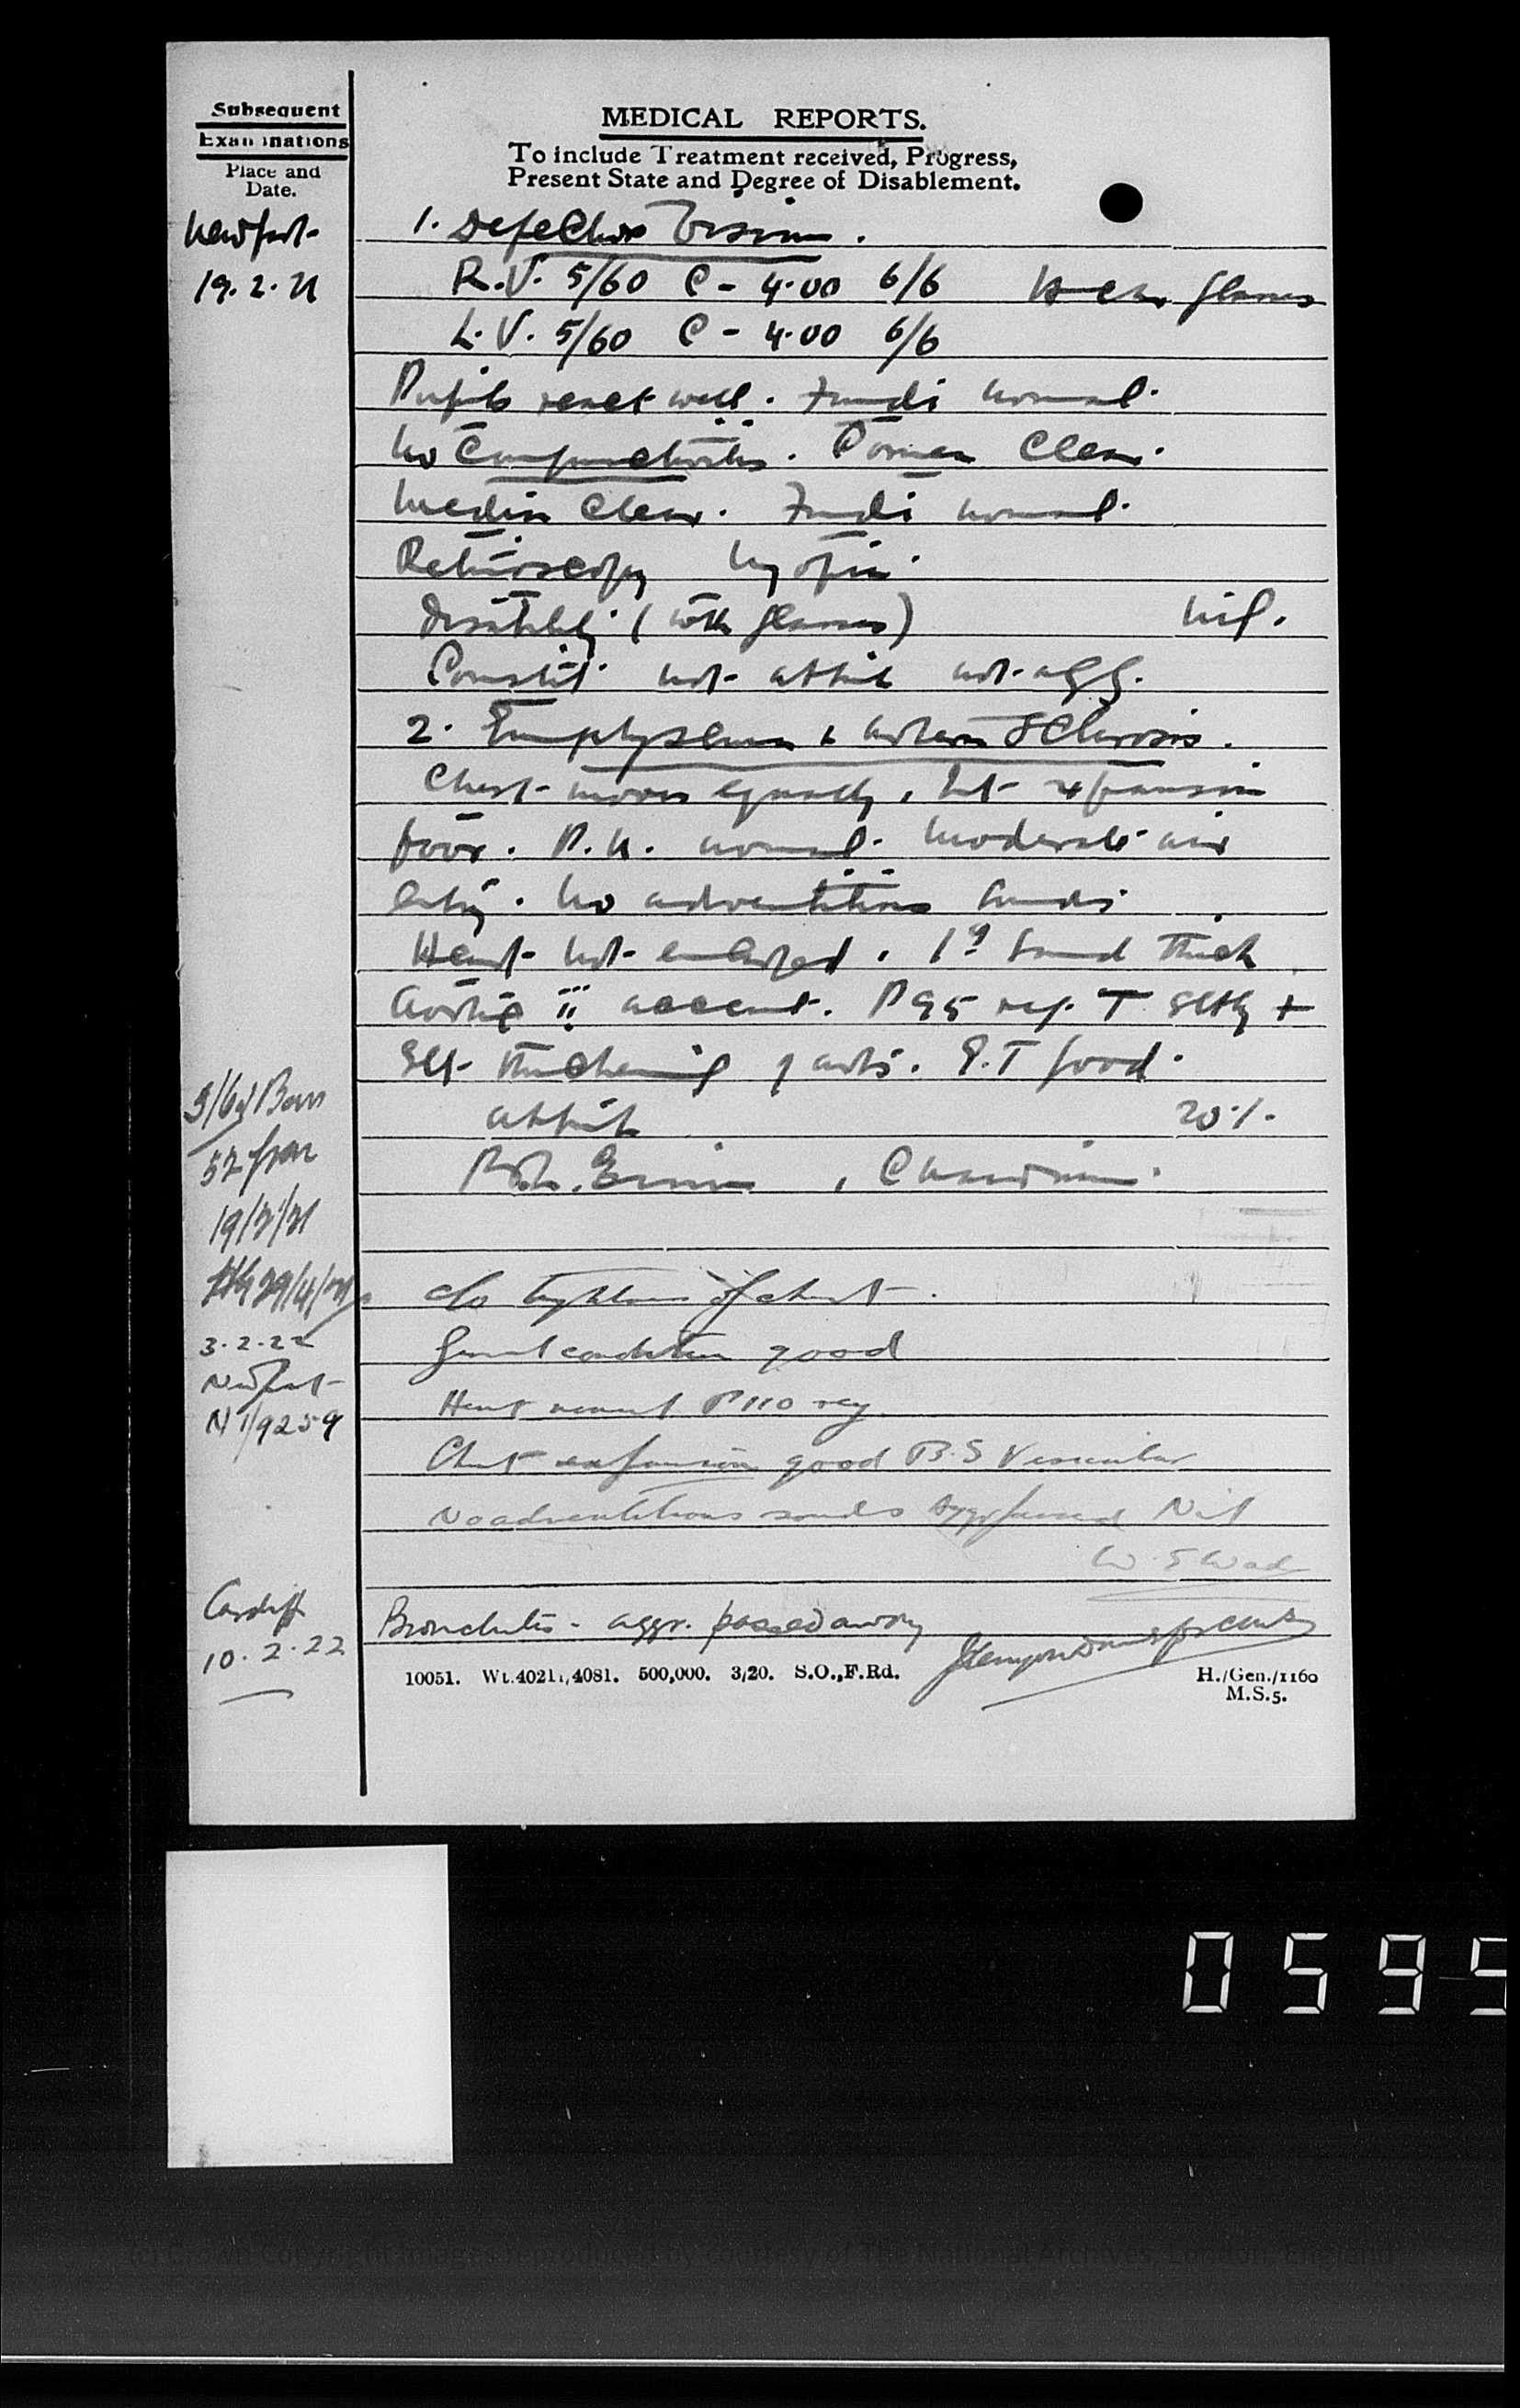 Subsequent
Examinations
Place and
Date.
MEDICAL REPORTS.
To include Treatment received, Progress,
Present State and Degree of Disablement.
Newport
19.2.21
1. Defective Vision.
R.V. 5/60 C - 4.00 6/6 glasses
L.V. 5/60 C - 4.00 6/6
Pupils react well. Fundi normal.
No Conjunctivitis. Cornea Clear.
Media Clear. Fundi normal.
Retinoscopy Myopia
Disability (with glasses) nil.
Constit. not attrib not agg.
2. Emphysema & Arterio Sclerosis.
Chest moves equally, but expansion
poor. P.N. normal. Moderate air
entry. No adventitious sounds
Heart not enlarged. 1st Sound thick
Aortic ii accent. P 95 reg. T Sltly +
Slt thickening of arts. E.T good.
attrib 20%.
52
19/2/21
29/4/21
c/o tightness of chest.
3.2.22
General condition good
Newport
Heart normal P 110 reg
N 1/9259
Chest expansion good B.S Vesicular
No adventitious sounds Nil
W. S Wade
Cardiff
10.2.22
Bronchitis - aggr. passed away
10051. Wt.40211/4081. 500,000. 3/20. S.O.,F.Rd.
H./Gen./1160
M.S.5.
0595
(c) Crown Copyright Images reproduced by courtesy of The National Archives, London, England